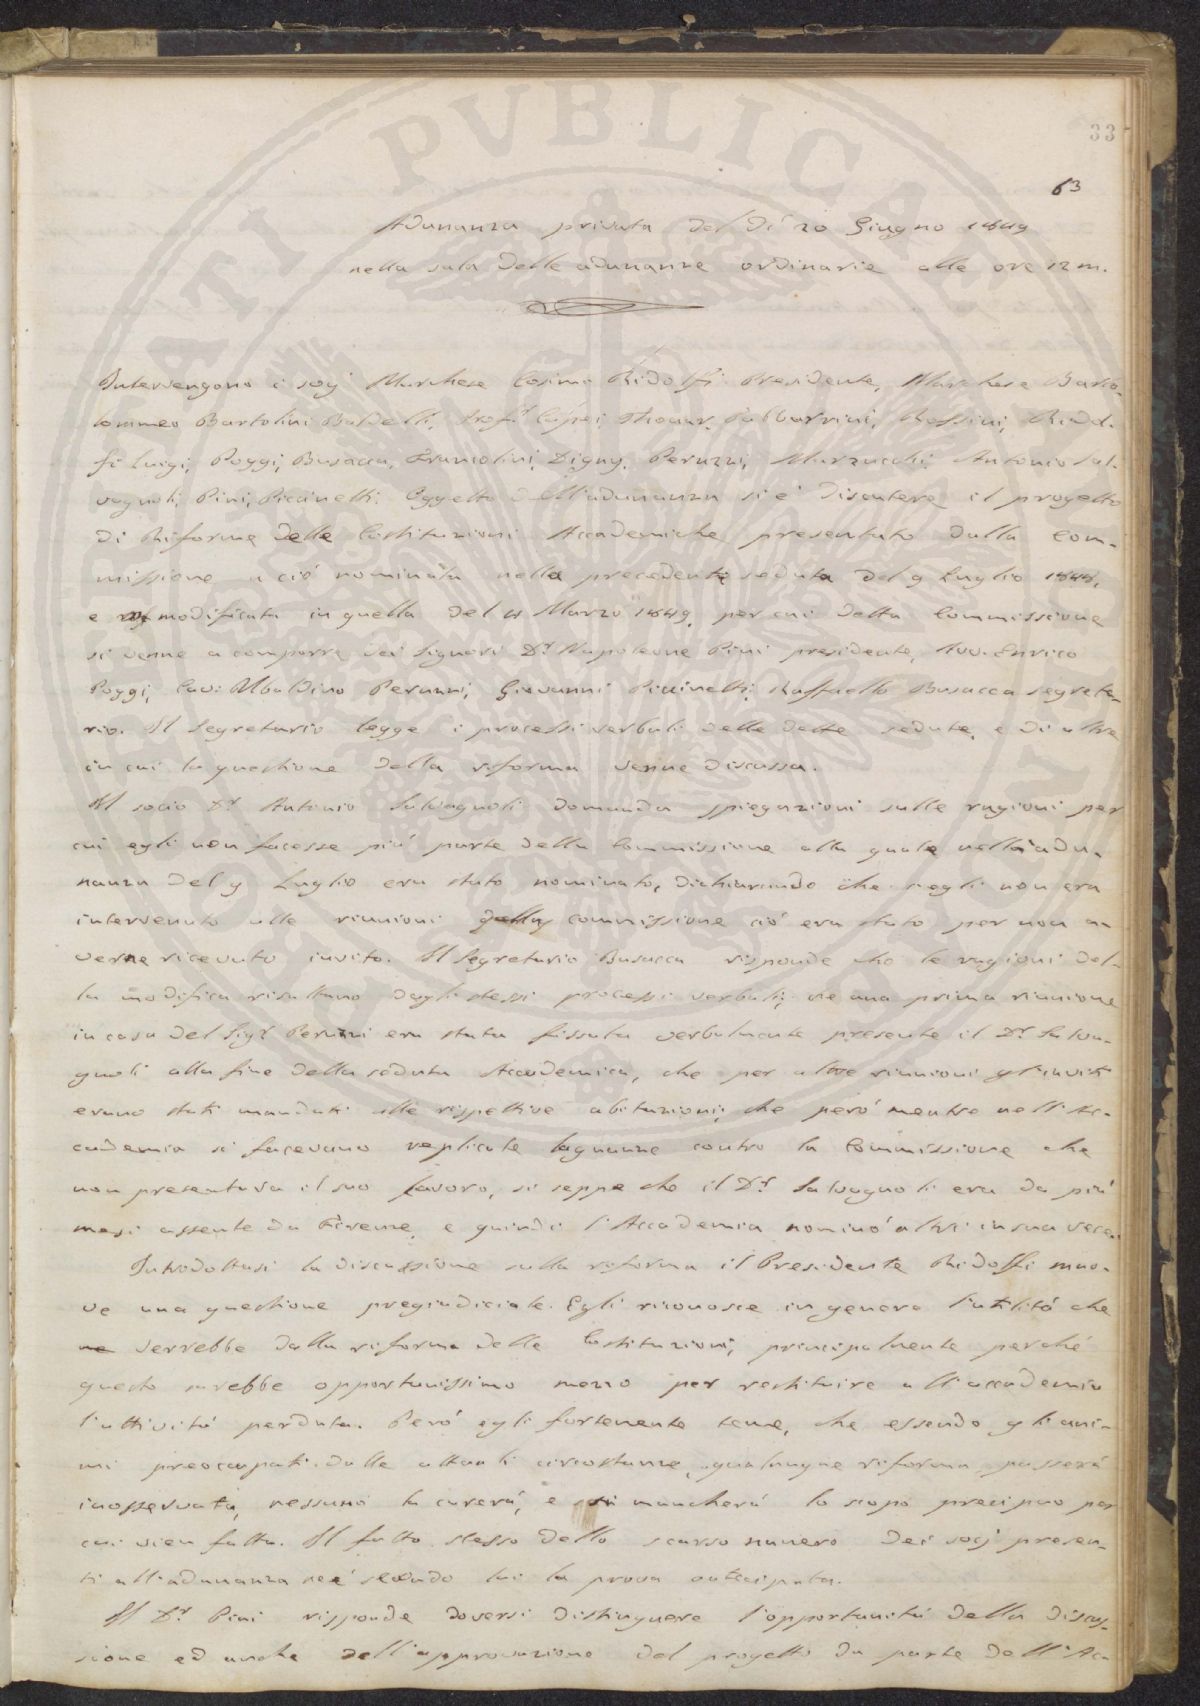 33
63
Adunanza privata del dì 20 Giugno 1849
nella sala delle adunanze ordinarie alle ore 12 m.
Intervengono i socj Marchese Cosimo Ridolfi Presidente, Marchese Barto-
lommeo Bartolini Baldelli, Prof.r Cupei Thouar, Tabbarrini, Ridol-
fi Luigi, Poggi, Busacca, Franciolini, Digny, Peruzzi, Marzucchi, Antonio Sal-
vagnoli, Pini, Piccinelli. Oggetto dell'adunanza si è discutere il progetto
di Riforme delle Costituzioni Accademiche presentato dalla Com-
missione a ciò nominata nella precedente seduta del 9 Luglio 1848,
e modificata in quella del 4 Marzo 1849, per cui detta Commissione
si venne a comporre dei Signori D.r Napoleone Pini presidente, Avv. Enrico
Poggi, Cav. Ubaldino Peruzzi, Giovanni Piccinelli, Raffaello Busacca segreta-
rio. Il Segretario legge i processi verbali delle dette sedute, e di altre
in cui la questione della riforma venne discussa.
Il socio D.r Antonio Salvagnoli domanda spiegazioni sulle ragioni per
cui egli non facesse più parte della Commissione alla quale nell'adu-
nanza del 9 Luglio era stato nominato, dichiarando che s'egli non era
intervenuto alle riunioni della commissione ciò era stato per non a-
verne ricevuto invito. Il Segretario Busacca risponde che le ragioni del-
la modifica risultano dagli stessi processi verbali; che una prima riunione
in casa del Sig.r Peruzzi era stata fissata verbalmente presente il D.r Salva-
gnoli alla fine della seduta Accademica, che per altre riunioni gl'inviti
erano stati mandati alle rispettive abitazioni; che però mentre nell'Ac-
cademia si facevano replicate lagnanze contro la Commissione che
non presentava il suo lavoro, si seppe che il D.r Salvagnoli era da più
mesi assente da Firenze, e quindi l'Accademia nominò altri in sua vece.
Introdottasi la discussione sulla riforma il Presidente Ridolfi muo-
ve una questione pregiudiciale. Egli riconosce in genere l'utilità che
ne verrebbe dalla riforma delle Costituzioni, principalmente perché
questo sarebbe opportunissimo mezzo per restituire all'accademia
l'attività perduta. Però egli fortemente teme, che essendo gli ani-
mi preoccupati dalle attuali circostanze, qualunque riforma passerà
inosservata, nessuno la curerà, e si mancherà lo scopo precipuo per
cui vien fatta. Il fatto stesso dello scarso numero dei socj presen-
ti all'adunanza ne è secondo lui la prova anticipata.
Il D.r Pini risponde doversi distinguere l'opportunità della discus-
sione ed anche dell'approvazione del progetto da parte dell'Ac-